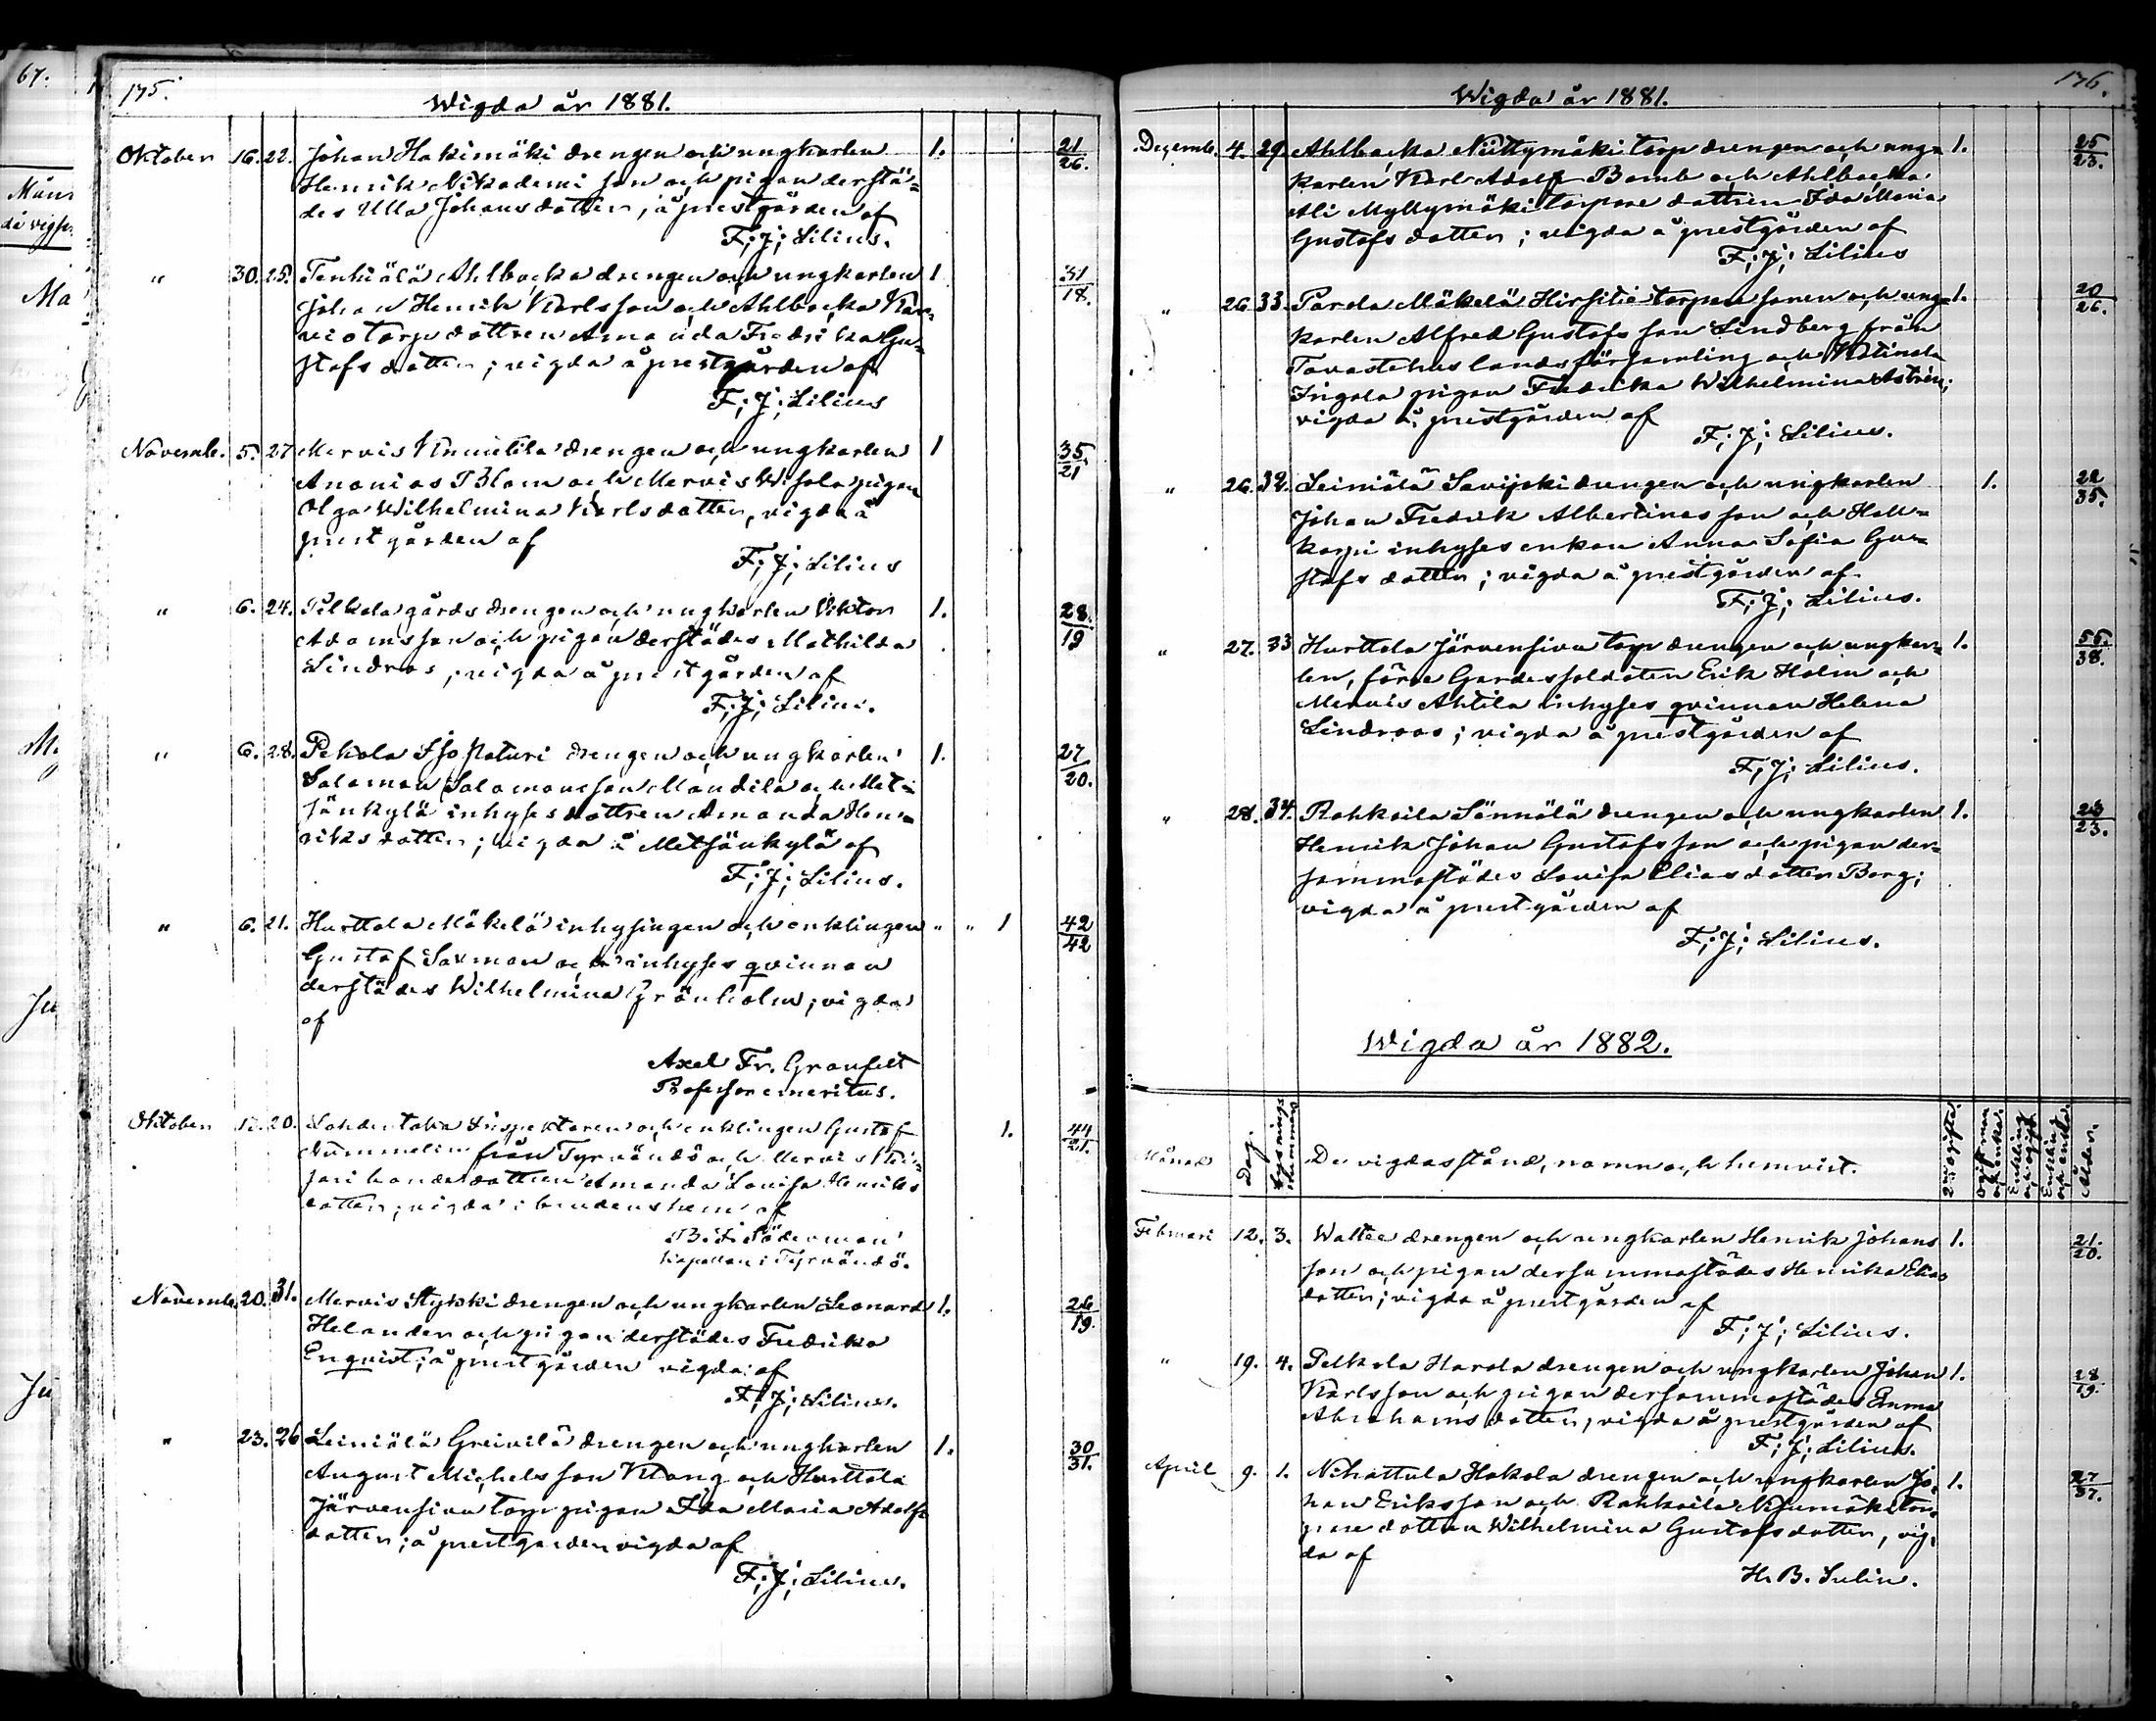 67.
Mån
de vigse
Ma
M
Ju
Ju
175.
Wigda år 1881.
Oktober 16. 22. Johan Hakimäki drengen och ungkarlen 1. 21/26.
Henrik Nikodemi son och pigan derstä=
des Ulla Johans dotter, å prestgården af
F; J; Lilius.
" 30. 25. Tenhiälä Ahlbacka drengen och ungkarlen 1 31/18.
Johan Henrik Karlsson och Ahlbacka
torp dottren Amanda Fredrika Gu=
stafs dotter; vigda å prestgården af
F; J; Lilius
Novemb. 5. 27 Mervis Knuutila drengen och ungkarlen 1 35/21
Ananias Blom och Mervis pigan
Olga Wilhelmina Karlsdotter, vigda å
prestgården af
F; J; Lilius
" 6. 24. Pelkola gårds drengen och ungkarlen Viktor 1. 28./19
Adamsson och pigan derstädes Mathilda
Lindroos, vigda å prestgården af
F; J; Lilius.
" 6. 28. Pekola drengen och ungkarlen 1. 27/20.
Salomon Salomonsson Mandila och Met=
sänkylä inhyses dottren Amanda Hen=
riks dotter; vigda å Metsänkylä af
F; J; Lilius.
" 6. 21. Hurttala Mäkelä inhysingen och enklingen " " 1 42/42
Gustaf Saxman och inhyses qvinnan
derstädes Wilhelmina Grönholm; vigda
af
Axel Fr. Granfelt
Professor emeritus.
Oktober 20. Inspektoren och enklingen Gustaf 1. 44/21.
Nummelin från Tyrvändö och Mervis
dottren Amanda Lovisa Henriks
dotter; vigda i brudens hem af
Söderman
Kapellan i Tyrvändö.
Novemb. 20. 31. Mervis Stykki drengen och ungkarlen Leonard 1. 26/19.
Helander och pigan derstädes Fredrika
Enqvist; å prestgården vigda af
F; J; Lilius.
" 23. 26 Leiniälä Greivilä drengen och ungkarlen 1. 30/31.
August Michelsson Klang och Hurttala
Järvensivu torp pigan Ida Maria Adolfs
dotter; å prestgården vigda af
F; J; Lilius.
176.
Wigda år 1881.
Decemb. 4. 29. Ahlbacka Niittymäki torp drengen och ung= 1. 25/23.
karlen Karl Adolf Bomb och Ahlbacka
Ali Myllymäki torpare dottren Ida Maria
Gustafs dotter; vigda å prestgården af
F; J; Lilius
" 26. 33. Parola Mäkelä torpare sonen och ung= 1. 20/26.
karlen Alfred Gustafs son Lindberg från
Tavastehus landsförsamling och Katinala
Ingala pigan Fredrika Wilhelmina Åström;
vigda å prestgården af
F; J; Lilius.
" 26. 32. Leiniälä Savijoki drengen och ungkarlen 1. 22/35.
Johan Fredrik Albertinas son och
inhyses enkan Anna Sofia Gu=
stafs dotter; vigda å prestgården af
F; J; Lilius.
" 27. 33 Hurttala Järvensivu torp drengen och ungkar= 1. 55./38.
len, förra Gardessoldaten Erik Holm och
Mervis Ahtila inhyses qvinnan Helena
Lindroos; vigda å prestgården af
F; J; Lilius.
" 28. 34. Rahkoila Sännälä drengen och ungkarlen 1. 23/23.
Henrik Johan Gustafs son och pigan der=
sammastädes Lovisa Elias dotter Borg;
vigda å prestgården af
F; J; Lilius.
Wigda år 1882.
Månad Dag. Lysnings nummer De vigdas stånd, namn och hemvist. 2ne ogifta. Ogift man och enka. Enkling och ogift. Enkling och enka. Ålder.
Februari 12. 3. Wattee drengen och ungkarlen Henrik Johans 1. 21./20.
son och pigan dersammastädes Henrika Elias
dotter; vigda å prestgården af
F; J; Lilius.
" 19. 4. Pelkola Harola drengen och ungkarlen Johan 1. 28/19.
Karlsson och pigan dersammastädes Emma
Abrahams dotter, vigda å prestgården af
F; J; Lilius.
April 9. 1. Nihattula Hakola drengen och ungkarlen Jo, 1. 27/37.
han Eriksson och Rahkoila Nisumäki tor,
pare dottren Wilhelmina Gustafs dotter, vig,
da af
H. B. Sulin.